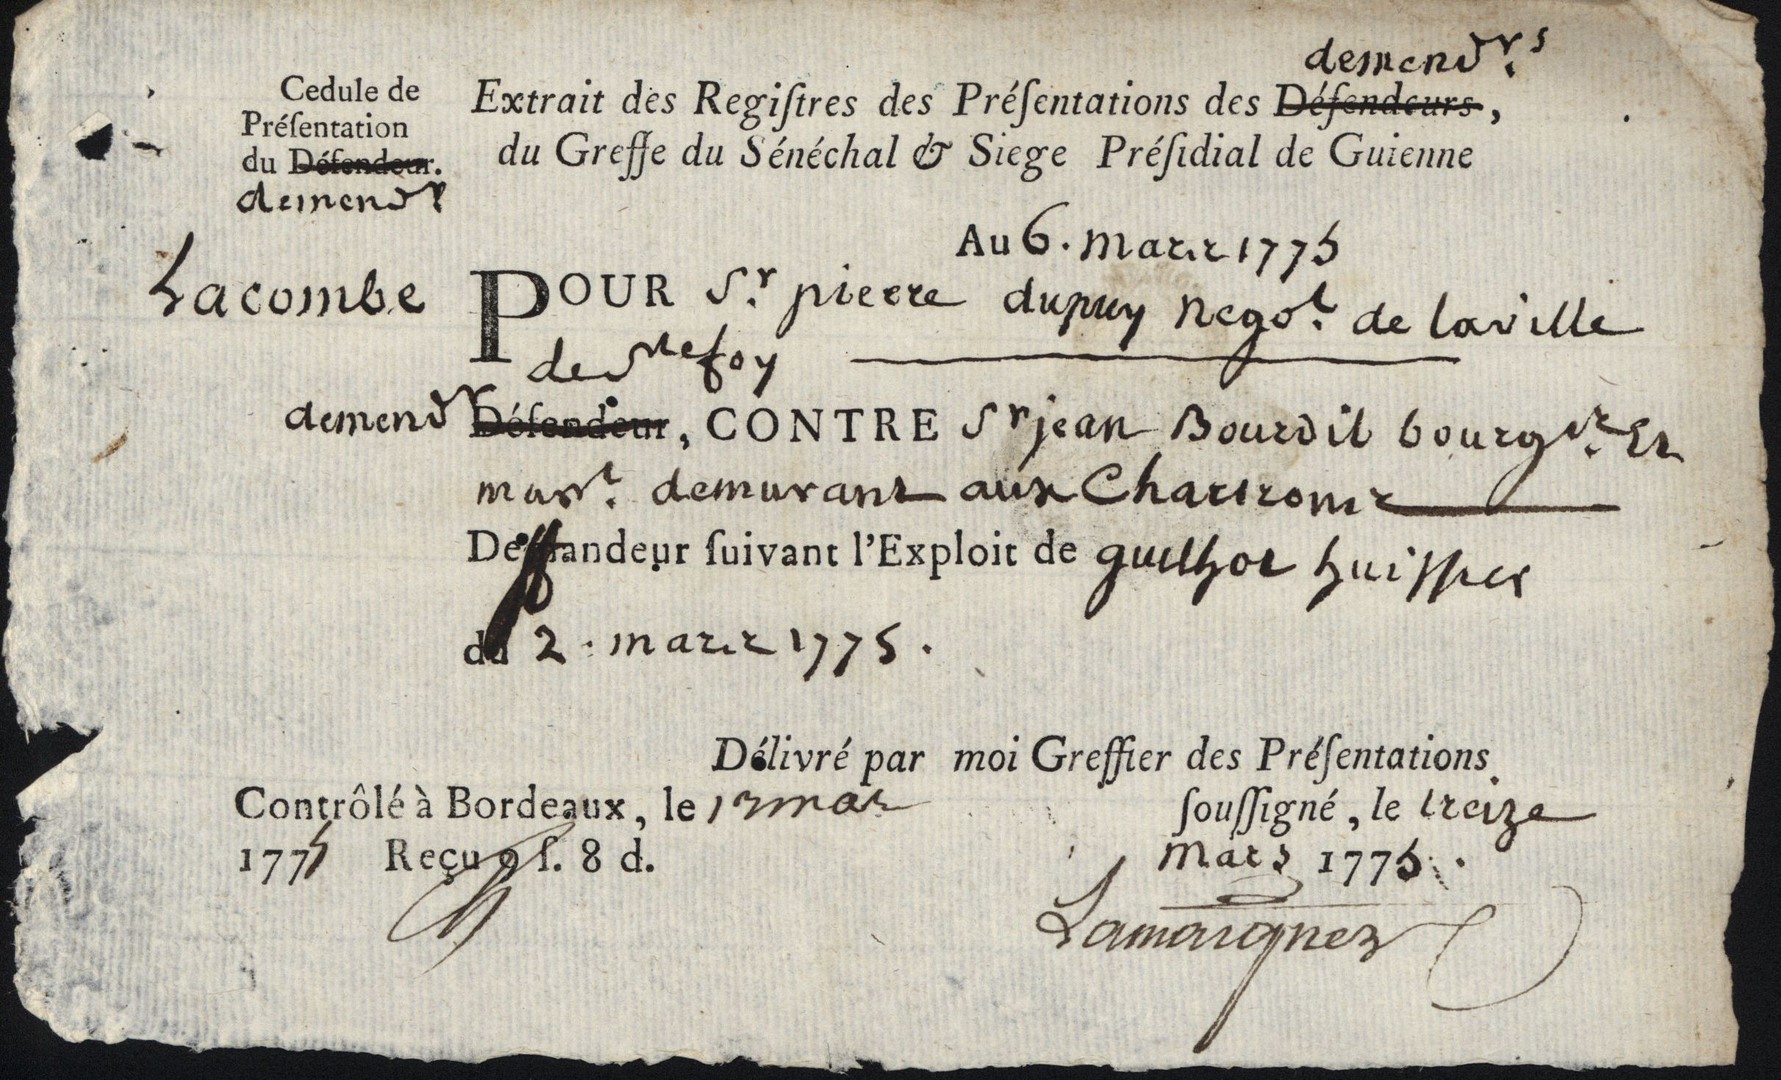 demend.rs
Cedule de
Préſentation
du Défendeur.
demendr
Extrait des Regiſtres des Préſentations des Défendeurs,
du Greffe du Sénéchal & Siege Préſidial de Guienne
Au 6. mars 1775
Lacombe
POUR Sr. pierre dupuy Negot. de laville
de Ste foy
demendr Défendeur, CONTRE Sr jean Bourdil bourgois. Et
mart. demurant aux Chartrons
Deffandeur ſuivant l'Exploit de guilhot huiſſier
du 2. mars 1775.
Délivré par moi Greffier des Préſentations
Contrôlé à Bordeaux, le 13 mars
ſouſſigné, le treize
1775 Reçu 9 ſ. 8 d.
mars 1775.
Lamaignez